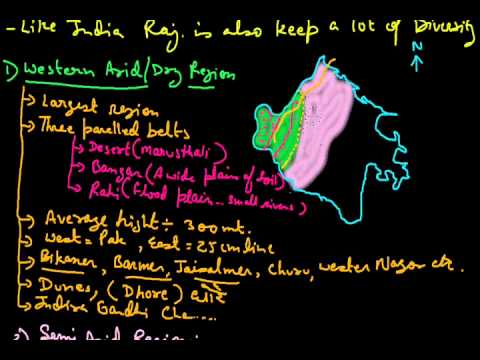 - Like India Raj. is also keep a lot of Diversity
N
1) Western Arid/Dry Region
Largest region
Three parelled belts
Desert (marusthali)
Bangar (A wide plain of soil)
Rohi (Flood plain... small rivers)
Average hight ÷ 300mt.
West = Pak, East = 25cm line
Bikaner, Barmer, Jaisalmer, Churu, wester Nagor etc.
Dunes, (Dhore)
Indira Gandhi Cha.....
2) Semi Arid Region